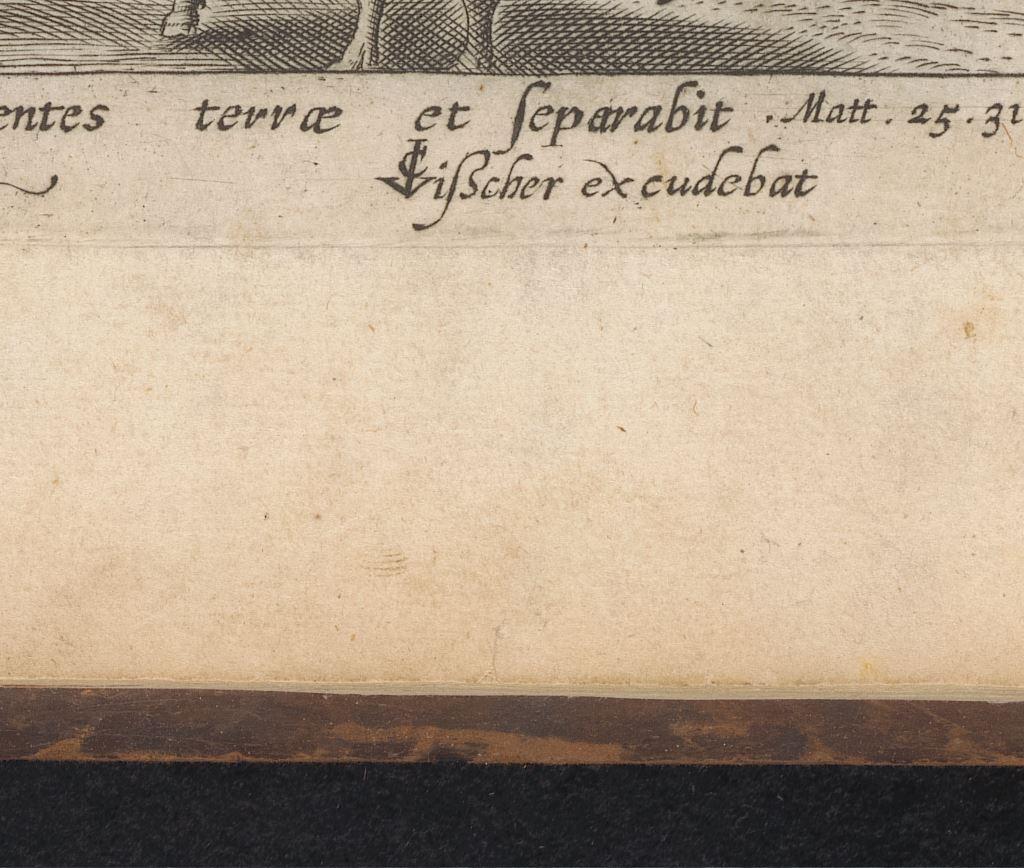 entes terræ et ſeparabit . Matt . 25 . 31
CJViſscher excudebat